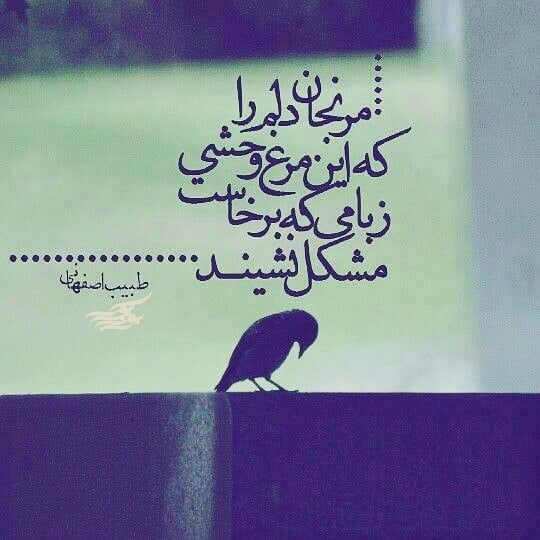 مرنجان دلم را
که این مرغ وحشی
ز بامی که برخاست
مشکل نشیند
طبیب اصفهانی